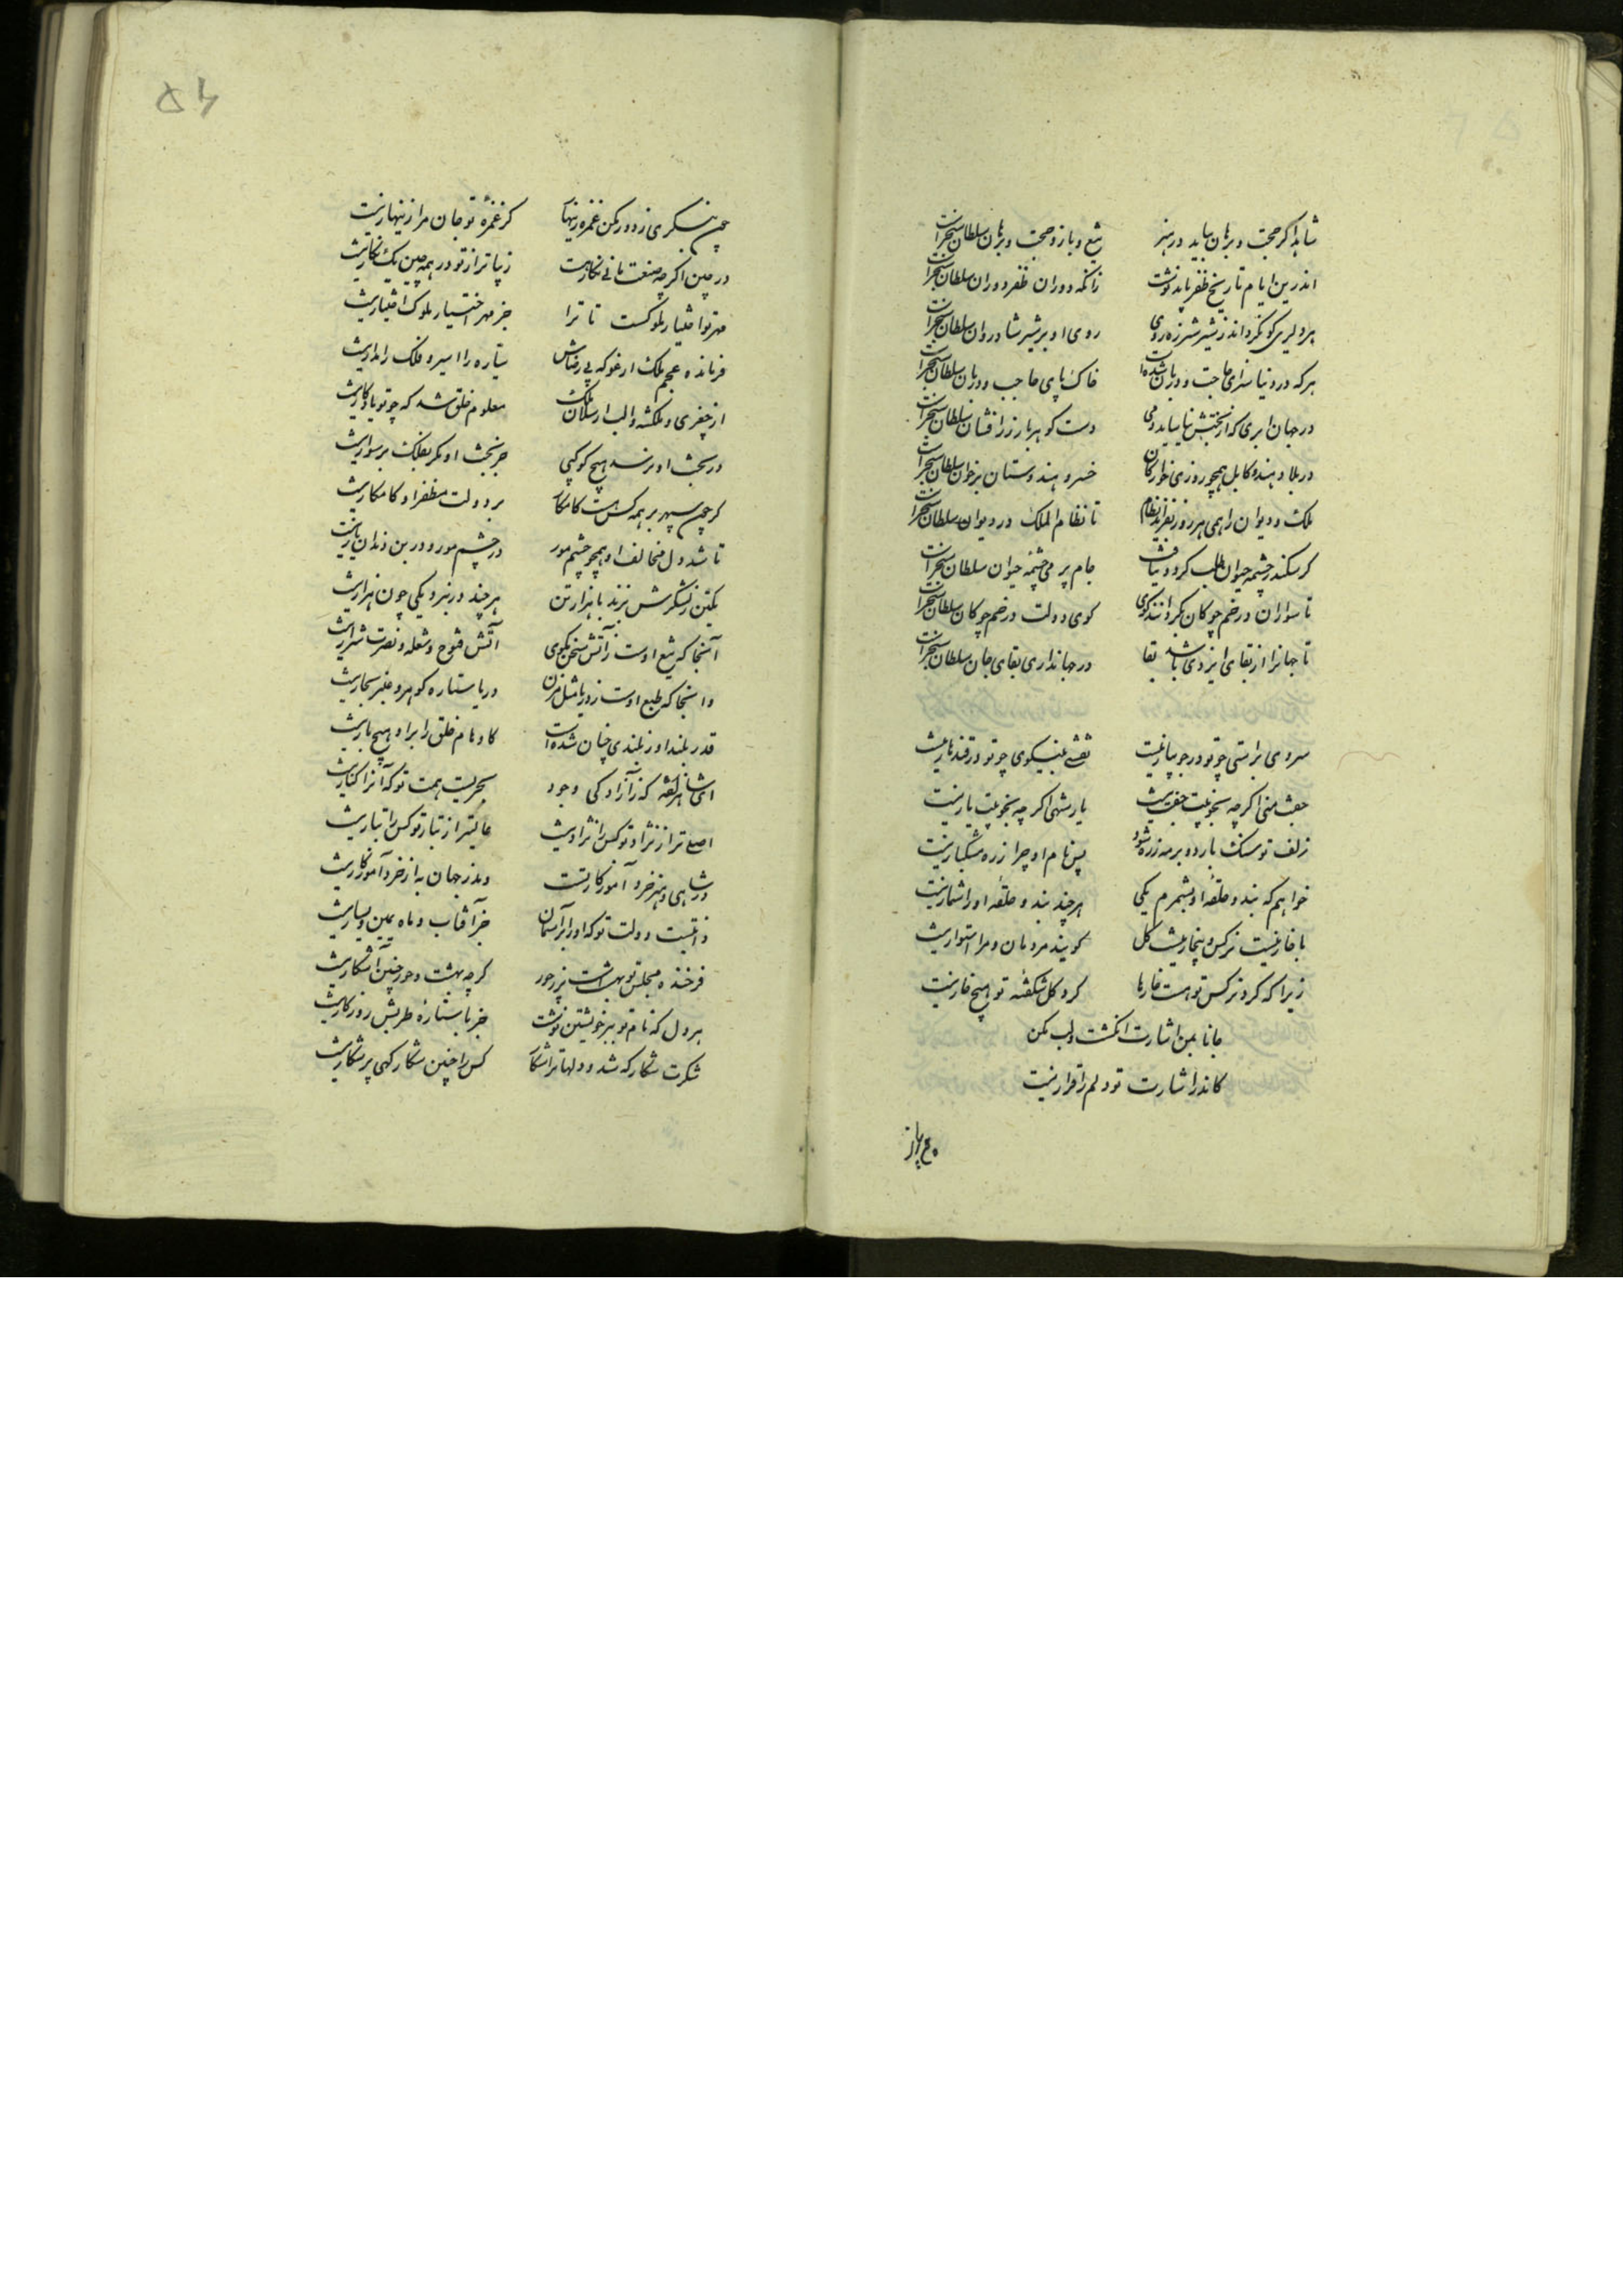 شاید اگر حجت و برهان بباید در هنر تیغ و بازو حجت و برهان سلطان سنجرست
اندرین ایام تاریخ ظفر باید نوشت زانکه دوران ظفر دوران سلطان سنجرست
روی او بر شیر شادروان سلطان سنجرست
هرکه در دنیا سزای حاجت و دربان شده است خاک پای حاجب و دربان سلطان سنجرست
در جهان ابری که از بخشش نیاساید دمی دست گوهر بار زر افشان سلطان سنجرست
در بلاد هند و کابل همچو روزی خوارگان خسرو هندوستان بر خوان سلطان سنجرست
ملک و دیوان را همی هر روز بفزاید نظام تا نظام الملک در دیوان سلطان سنجرست
گر سکندر چشمه حیوان طلب کرد و نیافت جام پر می چشمه حیوان سلطان سنجرست
تا سواران در خم چوکان بگردانند گوی گوی دولت در خم چوکان سلطان سنجرست
تا جهانرا از بقای ایزدی باشد بقا در جهانداری بقای جان سلطان سنجرست
سروی براستی چو تو در جویبار نیست نقشی بنیکوی چو تو در قندهار نیست
جفت منی اگرچه بخوبیت جفت نیست یار شهی اگرچه بخوبیت یار نیست
زلف تو مشک بارد و بر مه زره شود پس نام او چرا زره مشکبار نیست
خواهم که بند و حلقه او بشمرم یکی هرچند بند و حلقه او را شمار نیست
با خار نیست نرکس و بیخار نیست گل گویند مردمان و مرا استوار نیست
زیرا که گرد نرکس تو هست خارها گرد گل شکفته تو هیچ خار نیست
جانا بمن اشارت انکشت و لب مکن
کاندر اشارت تو دلم را قرار نیست
۵۴
چون بنگری ز دور مکن غمزه زینهار کز غمزه تو جان مرا زینهار نیست
در چین اگرچه صنعت مانی نگار هست زیباتر از تو در همه چین یک نگار نیست
مهر تو اختیار ملوکست تا ترا جز مهر اختیار ملوک اختیار نیست
فرمانده عجم ملک ارغو که بی رضاش سیاره را مسیر و فلک را مدار نیست
از جغری و ملکشه و الب ارسلان ملک معلوم خلق شد که چو تو یادکار نیست
در بخت او نرسد هیچ کوکبی جز بخت او مکر بفلک بر سوار نیست
گر چون سپهر بر همه کس هست کامکار بر دولت مظفر او کامکار نیست
تا شد دل مخالف او همچو چشم مور در چشم مور و در بن دندان مار نیست
یکتن ز لشکرش بزند با هزار تن هرچند در نبرد یکی چون هزار نیست
آنجا که تیغ اوست ز آتش سخن مگوی آتش فتوح و شعله و نصرت شرار نیست
وانجا که طبع اوست ز دریا مثل مزن دریا ستاره گوهر و عنبر بخار نیست
قدر بلند او ز بلندی چنان شده است کاوهام خلق را بر او هیچ بار نیست
بحریست همت تو که آنرا کنار نیست
اصلی تر از نژاد تو کس را نژاد نیست عالیتر از تبار تو کس را تبار نیست
در شاهی و هنر خرد آموزکار تست وندر جهان به از خرد آموزکار نیست
ذاتیست دولت تو که او را بر آسمان جز آفتاب و ماه یمین و یسار نیست
فرخنده مجلس تو بهشت است پر ز حور گرچه بهشت و حور چنین آشکار نیست
هر دل که نام تو ببر خویشتن نوشت جز با ستاره طربش روزکار نیست
شکرت شکارکه شد و دلها ترا شکار کس را چنین شکارکهی پر شکار نیست